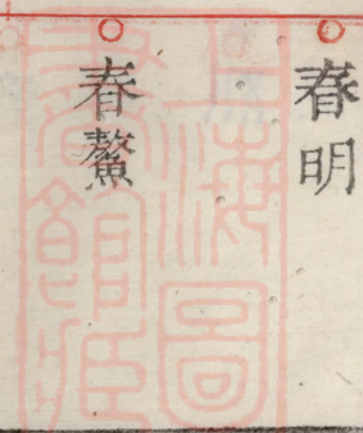 春明
春鰲
上海圖
書館藏